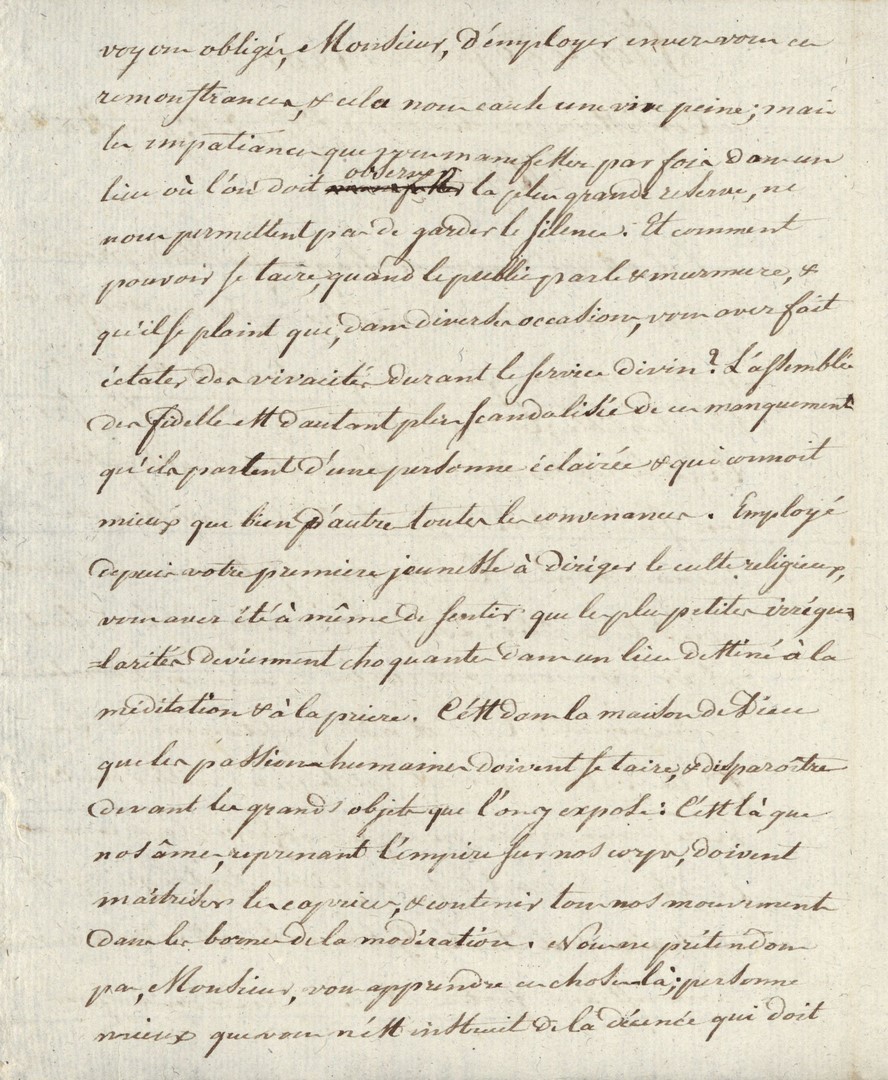 voyons obligés, Monsieur, d'employer envers vous ces
remonstrances, & cela nous cause une vive peine; mais
les impatiances que vous manifestez par fois dans un
lieu où l'on doit observer la plus grande reserve, ne
nous permettent pas de garder le silence. Et comment
pouvoir se taire, quand le public parle & murmure, &
qu'il se plaint que, dans diverses occasions, vous avez fait
éclater des vivacités durant le service divin? L'assemblée
des fidelles est d'autant plus scandalisée de ces manquements
qu'ils partent d'une personne éclairée & qui connoit
mieux que bien d'autres toutes les convenances. Employé
depuis votre premiere jeunesse à diriger le culte religieux,
vous avez été à même de sentir que les plus petites irrégu=
=larités deviennent choquantes dans un lieu destiné à la
méditation & à la priere. C'est dans la maison de Dieu
que les passions humaines doivent se taire, & disparoître
devant les grands objets que l'on y expose: C'est là que
nos âmes, reprenant l'empire sur nos corps, doivent
maîtriser les caprices, & contenir tous nos mouvements
dans les bornes de la modération. Nous ne prétendons
pas, Monsieur, vous apprendre ces choses là; personne
mieux que vous n'est instruit de la décence qui doit